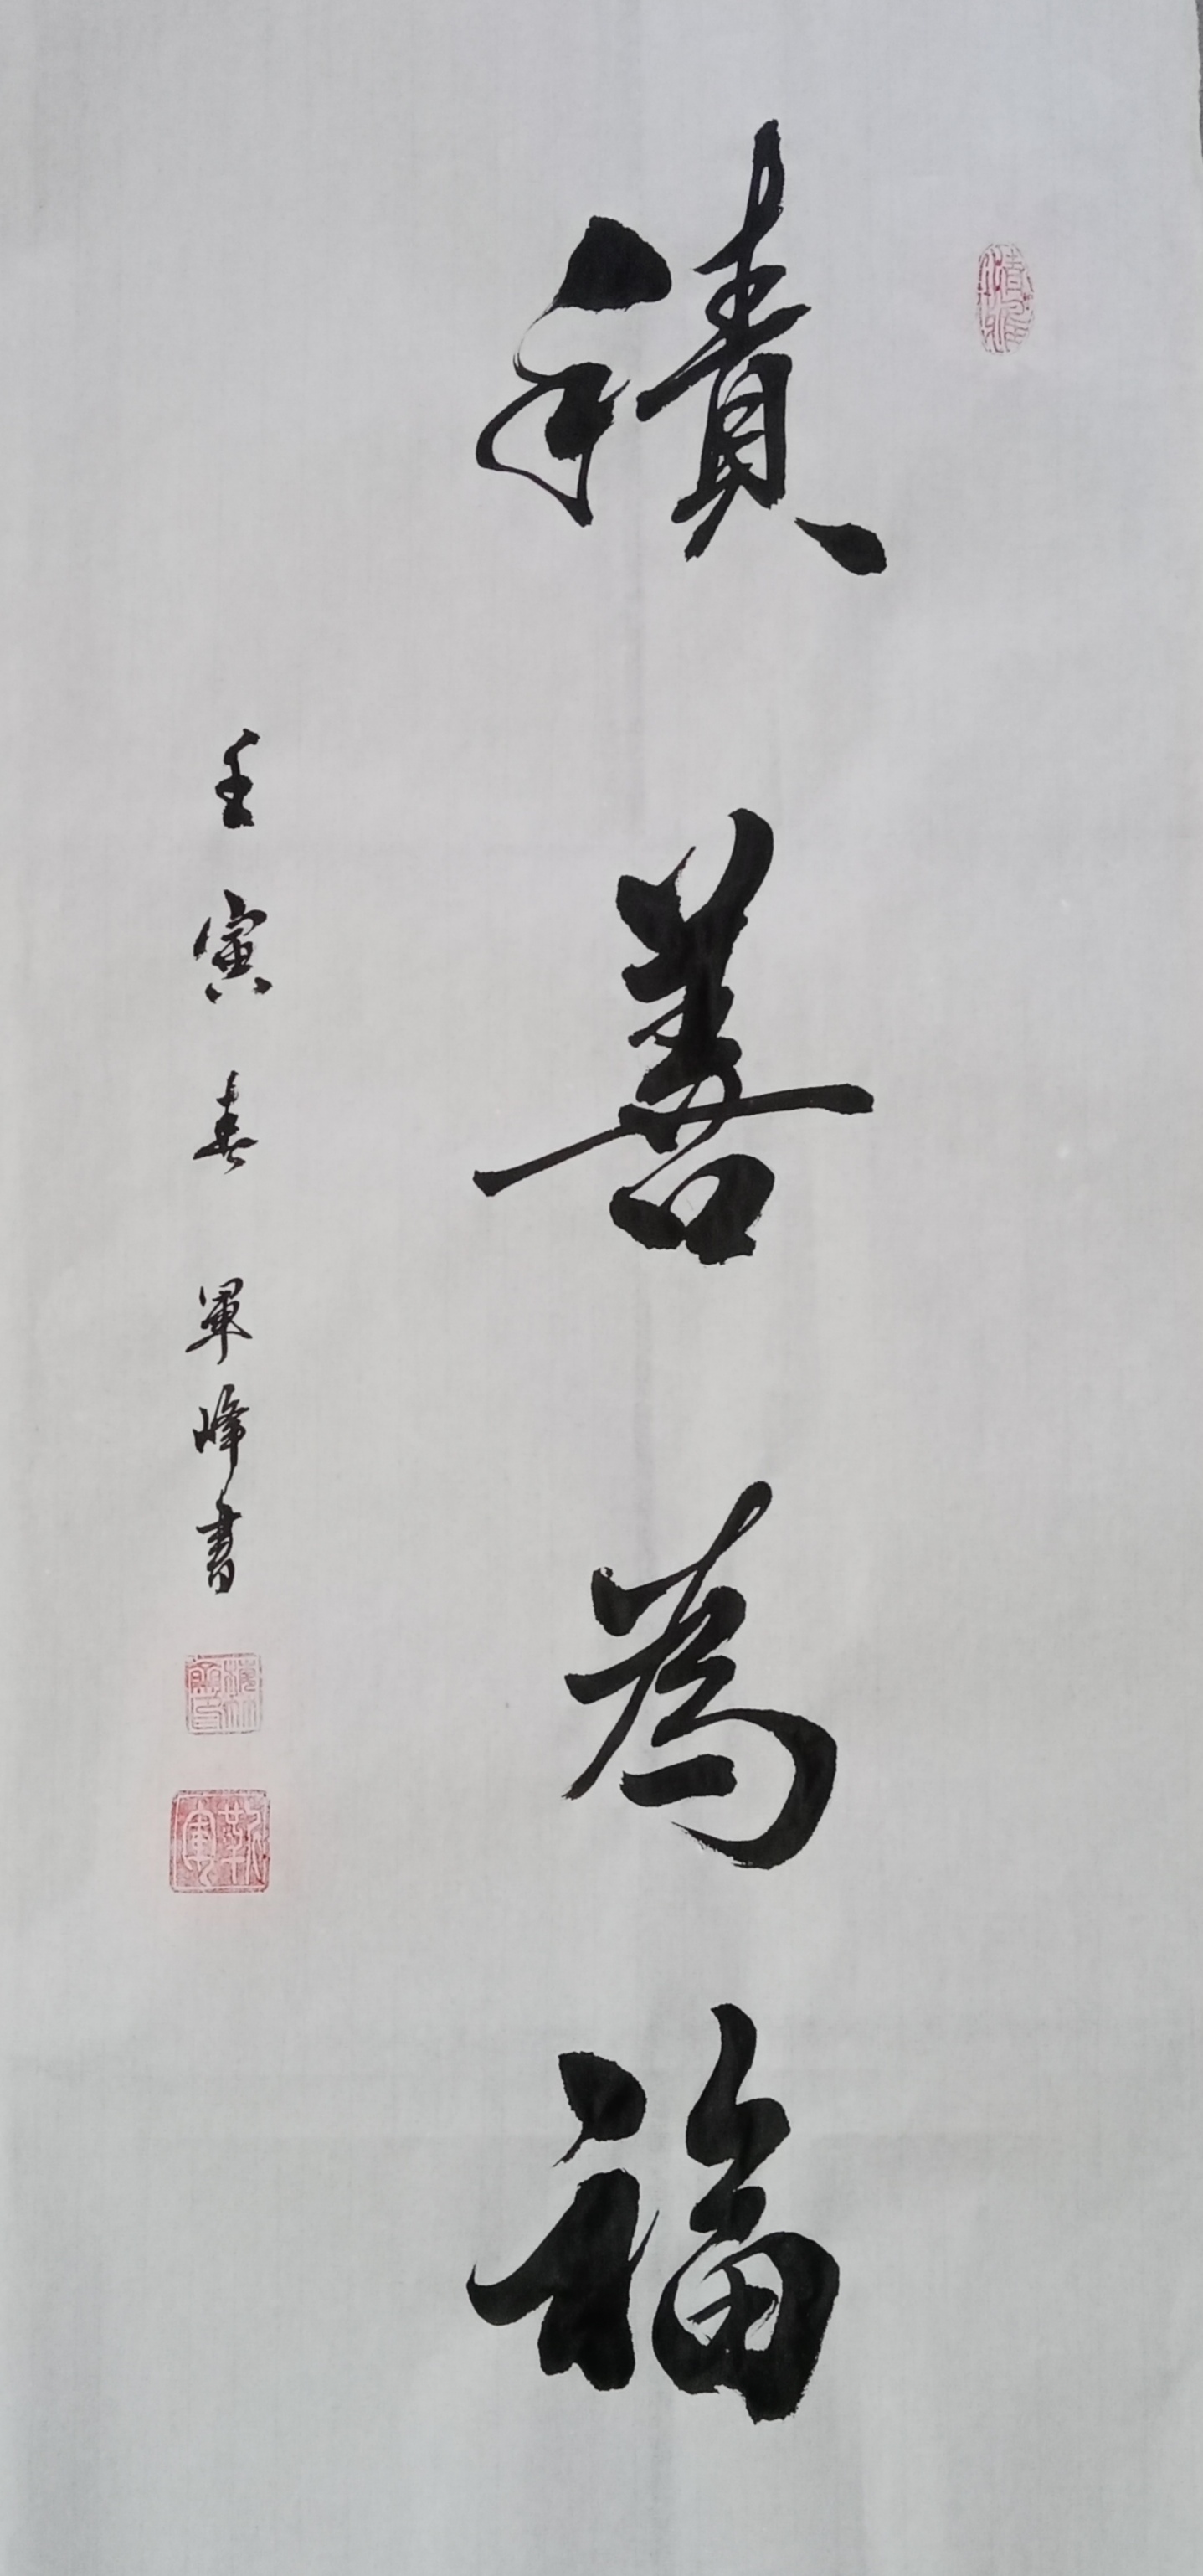 積善為福
壬寅春 軍峰書